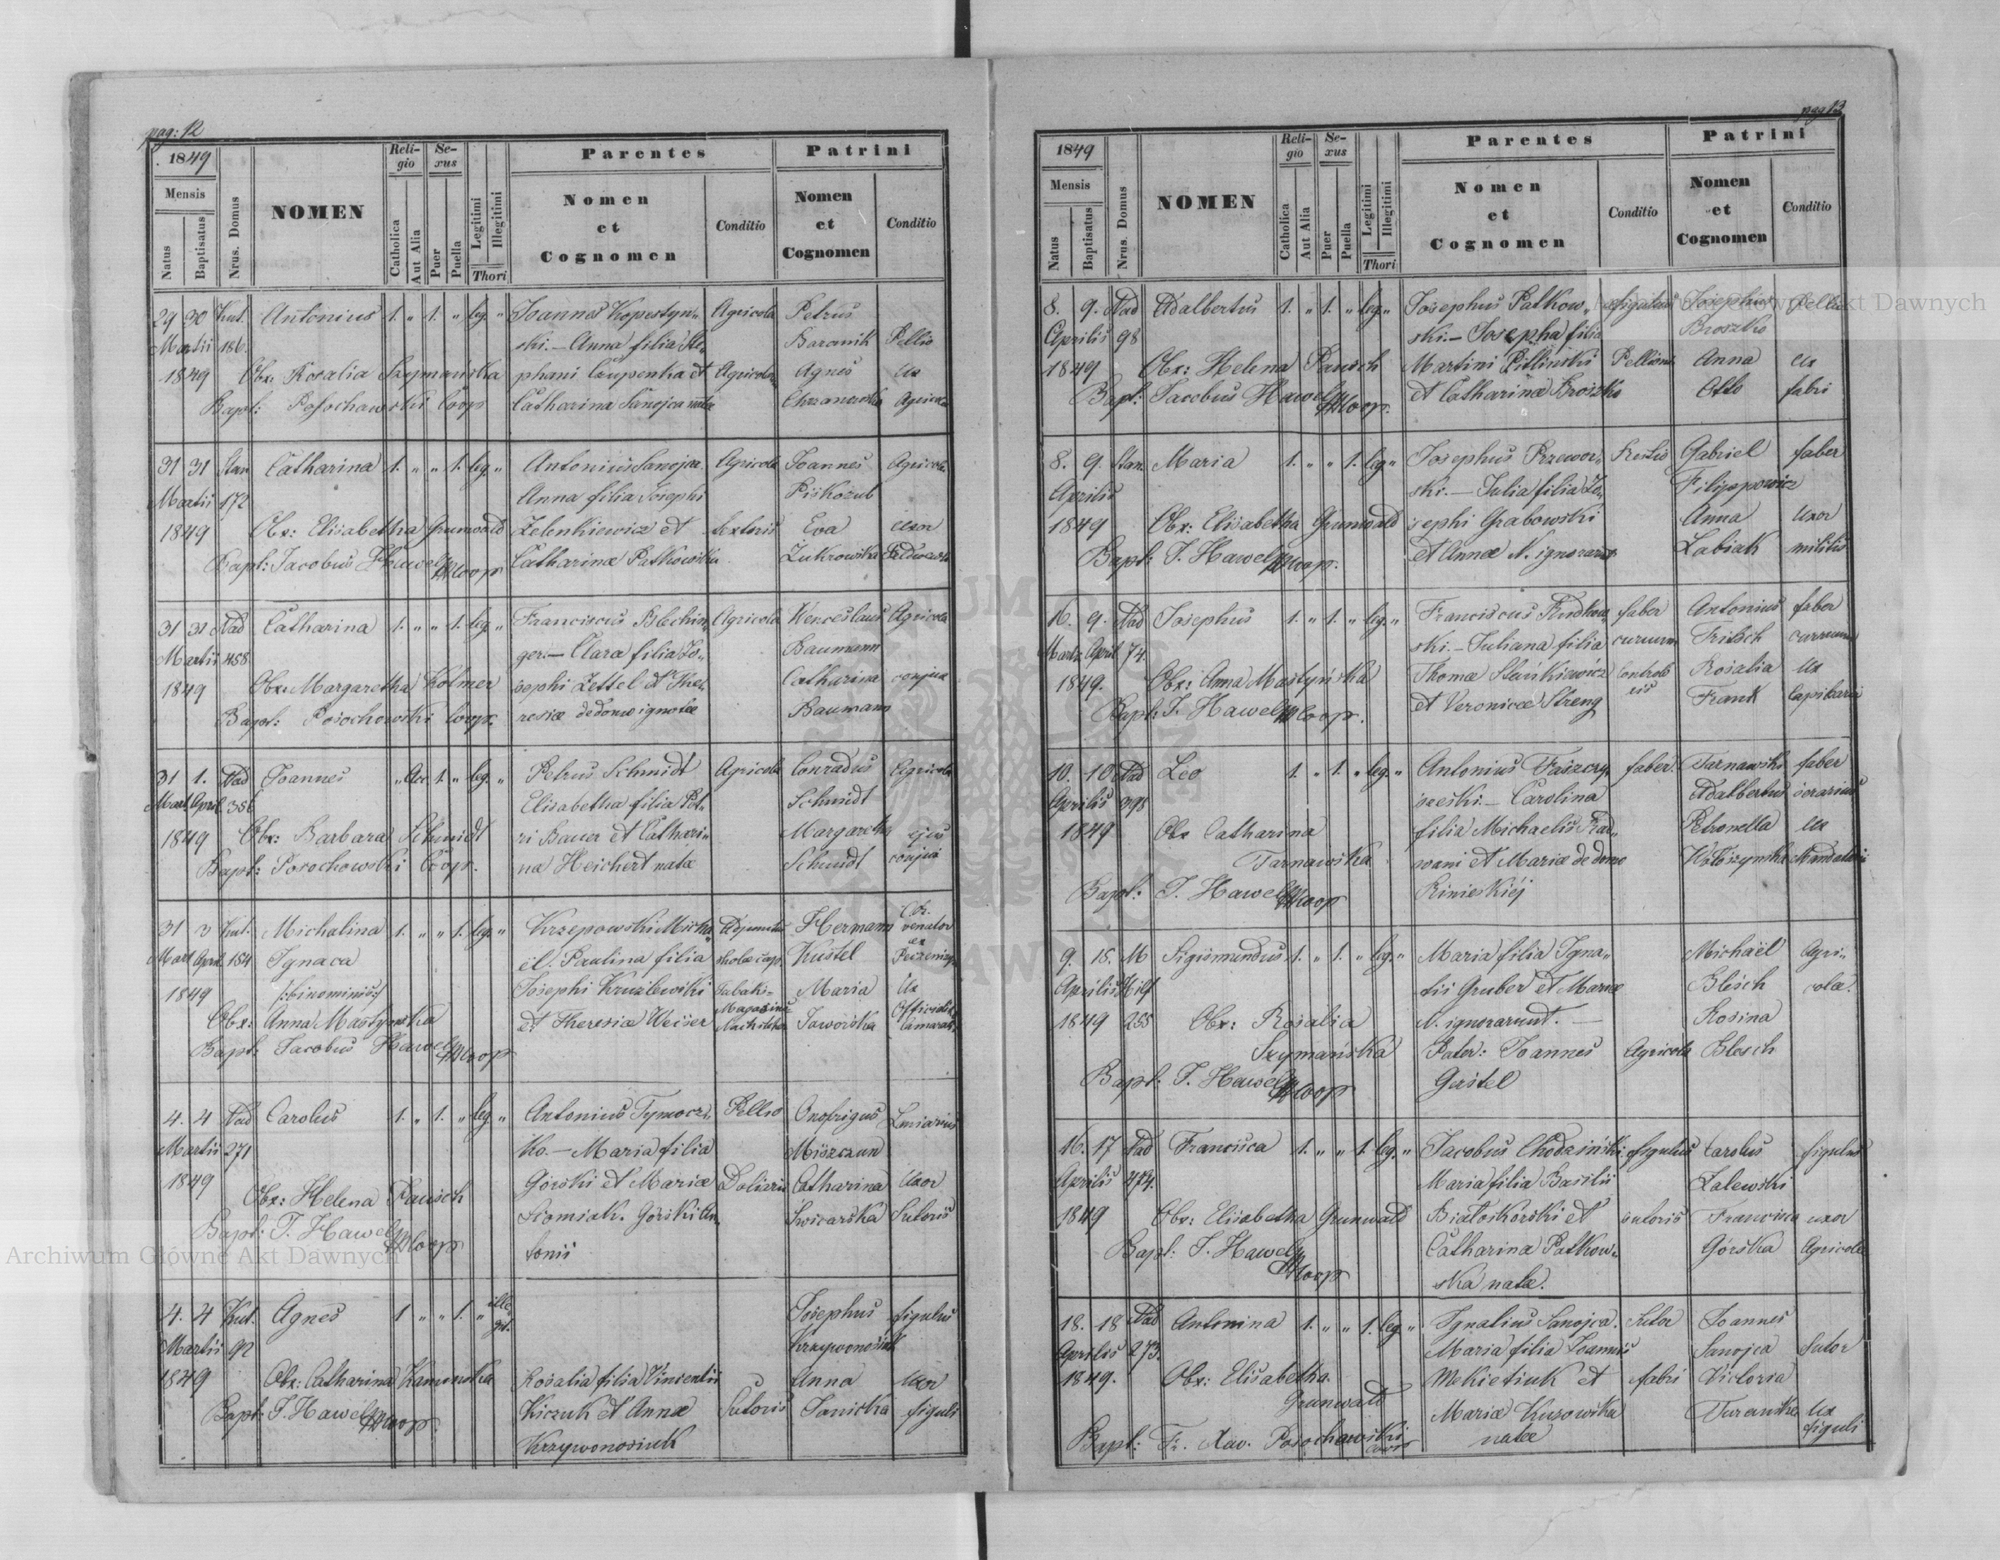 pag: 12
1849
Mensis
Natus
Baptisatus
Nrus. Domus
NOMEN
Religio
Catholica
Aut Alia
Sexus
Puer
Puella
Legitimi
Illegitimi
Thori
Parentes
Nomen
et
Cognomen
Conditio
Patrini
Nomen
et
Cognomen
Conditio
29 30 Antonius 1. " 1. " leg. " Joannes Kopestyn- Agricola Petrus
Martii 186. ski. - Anna filia Ste- Baranik Pellio
1849 Obx: Rosalia Szymańska phani Czupenka et Agricola Agnes Ux
Bapt: Posochowski Coop Catharina Sanojca nata Chrzanowska Agricola
31 31 Stan Catharina 1. " " 1. leg. " Antonius Sanojca. Agricola Joannes Agricola
Martii 172 Anna filia Josephi Piskozub
1849 Obx: Elisabetha Grunwald Zelenkiewicz et textoris Eva uxor
Bapt: Jacobus Hawel Coop Catharina Patkowska Zukrowska
31 31 Nad Catharina 1. " " 1. leg. " Franciscus Blechin- Agricola Wenceslaus Agricola
Martii 458. ger. - Clara filia Jo- Baumann
1849 Obx: Margaretha Kolmer sephi Zettel et The- Catharina conjux
Bapt: Posochowski Coop. resiæ de domo ignotæ Baumann
31 1. Nad Joannes " 1. " leg. " Petrus Schmidt Agricola Conradus Agricola
Mart April 356 Elisabetha filia Pet- Schmidt
1849 Obx: Barbara Schmidt ri Bauer et Cathari- Margaretha ejus
Bapt: Posochowski Coop. na Heichert nata Schmidt conjux
31 3 Michalina 1. " " 1. leg. " Krzepowski Micha- Hermann venator
Mart April 184 Ignaca el. Paulina filia Kustel
1849 binominis Josephi Kruzlewski Maria Ux
Obx: Anna Mastynska et Theresiæ Weiser Jaworska
Bapt: Jacobus Hawel Coop
4. 4 Nad Carolus 1. " 1. " leg. " Antonius Tymocz- Pellio Onofrigus
Martii 271 ko. - Maria filia Miszczun
1849 Górski et Mariæ Catharina Uxor
Obx: Helena Pausch Górski An- Swicarska Sutoris
Bapt: J. Hawel Coop tonii
4. 4 Agnes 1 " " 1. " ille- Josephus figulus
Martii 92 git. Krzywonosiuk
1849 Obx: Catharina Rosalia filia Vincentii Anna uxor
Bapt: J. Hawel Coop. Kiczuk et Annæ Sutoris Janicka figuli
Krzywonosiuk
pag 13
1849
Mensis
Natus
Baptisatus
Nrus. Domus
NOMEN
Religio
Catholica
Aut Alia
Sexus
Puer
Puella
Legitimi
Illegitimi
Thori
Parentes
Nomen
et
Cognomen
Conditio
Patrini
Nomen
et
Cognomen
Conditio
8. 9. Nad Adalbertus 1. " 1. " leg. " Josephus Patkow- Josephus
Aprilis 98 ski. - Josepha filia Broszko
1849 Obx: Helena Pausch Martini Pellionis Anna ux
Bapt: Jacobus Hawel Coop. et Catharina Otto fabri
8. 9. Stan Maria 1. " " 1. leg. " Josephus Przewor- Gabriel faber
Aprilis ski. - Julia filia Jo- Filipowicz
1849 Obx: Elisabetha Grunwald sephi Grabowski Anna uxor
Bapt: J. Hawel Coop. et Annæ N. ignorant Labiak militis
16. 9. Nad Josephus 1. " 1. " leg. " Franciscus faber Antonius faber
Martii April 74 ski. - Juliana filia curruum Fritsch curruum
1849. Obx: Anna Mastyńska Thomæ Stańkiewicz Rosalia Ux
Bapt: J. Hawel Coop. et Veronicæ Streng Frank
10. 10 Nad Leo 1. " 1. " leg. " Antonius faber. Tarnawski faber
Aprilis 398 - Carolina Adalbertus serarius
1849 Obx Catharina filia Michaelis Petronella ux
Tarnawska et Mariæ de domo
Bapt: J. Hawel Coop
9. 15. M Sigismundus 1. " 1. " leg. " Maria filia Igna- Michaël Agri-
Aprilis 255 tii Gruber et Mariæ Blesch colæ.
1849 Obx: Rosalia N. ignorarunt. - Rosina
Szymańska Pater: Joannes Agricola Blesch
Bapt: J. Hawel Coop Gustel
16. 17 Nad Francisca 1. " " 1. leg. " Jacobus Chodziński figulus Carolus figulus
Aprilis 474. Maria filia Basilii Zalewski
1849 Obx: Elisabetha Grunwald Białoskórski et sutoris Francisca uxor
Bapt: J. Hawel Coop Catharina Patkow- Górska Agricolæ
ska nata.
18. 18 Nad Antonina 1. " " 1. leg. " Ignatius Sanojca. Sutor Joannes
Aprilis 273. Maria filia Joannis Sanojca Sutor
1849. Obx: Elisabetha Mekietiuk et fabri Victoria
Grunwald Mariæ Kusowska Ux
Bapt: Fr. Xav. Posochowski nata figuli
Archiwum Główne Akt Dawnych
Archiwum Główne Akt Dawnych